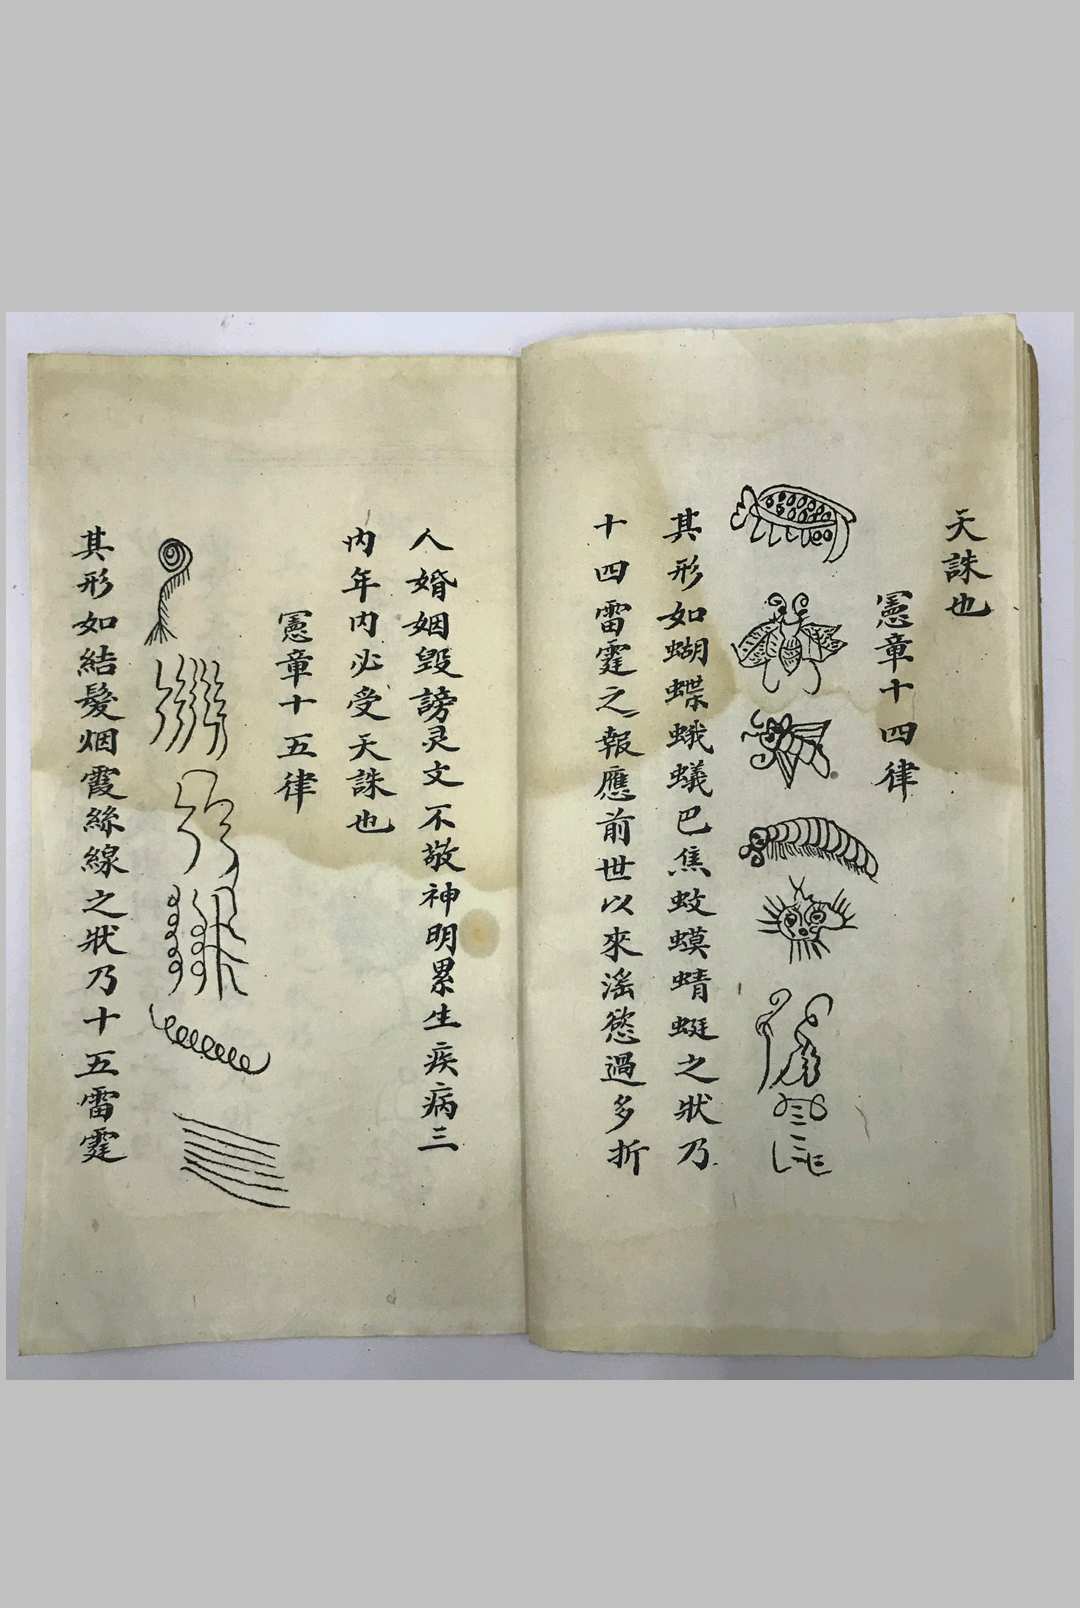 天誅也
憲章十四律
其形如蝴蝶蛾蟻巴焦蚊蟆蜻蜓之狀乃
十四雷霆之報應前世以來淫慾過多折
人婚姻毀謗灵文不敬神明累生疾病三
內年內必受天誅也
憲章十五律
其形如結髮烟霞絲線之狀乃十五雷霆